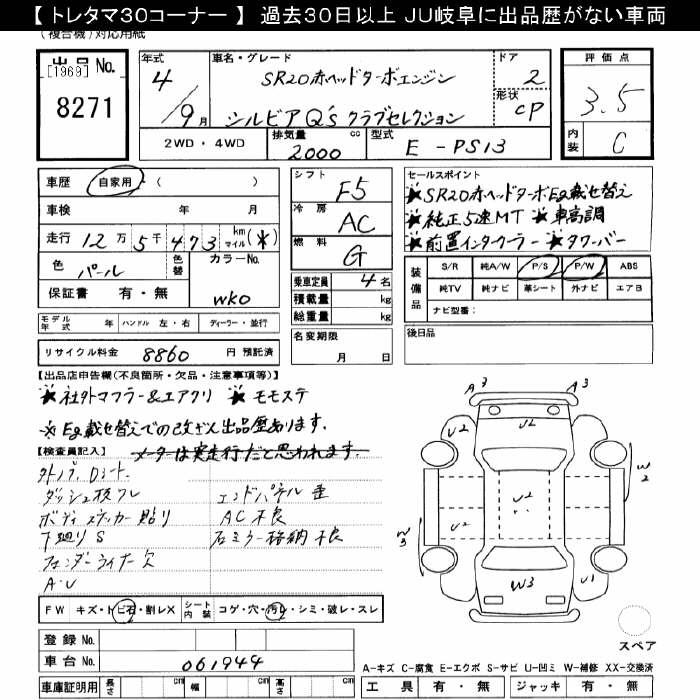 【 トレタマ30コーナー 】 過去30日以上 JU岐阜に出品歴がない車両
(複合機)対応用紙
出品 No.
[1969]
8271
年式
4/9月
車名・グレード
SR20赤ヘッドターボエンジン
シルビア Q's クラブセレクション
ドア
2
形状
CP
評価点
3.5
内装
C
2WD・4WD
排気量 2000 cc
型式 E - PS13
車歴 自家用・( )
車検 年 月
走行 12万5千473 km マイル (*)
色 パール
色替
カラーNo. WK0
保証書 有・無
シフト F5
冷房 AC
燃料 G
乗車定員 4名
積載量 kg
総重量 kg
名変期限
月 日
セールスポイント
★SR20赤ヘッドターボEg載せ替え
★純正5速MT ★車高調
★前置インタークーラー ★タワーバー
装備品
S/R 純A/W P/S P/W ABS
純TV 純ナビ 革シート 外ナビ エアB
ナビ型番:
後日品
モデル年式 年 ハンドル 左・右 ディーラー・並行
リサイクル料金 8860 円 預託済
【出品店申告欄(不良箇所・欠品・注意事項等)】
★社外マフラー&エアクリ ★モモステ
※Eg載せ替えでの改ざん出品歴あります.
【検査員記入】 メーターは実走行だと思われます.
外ノブ, Dシート
ダッシュ板ワレ
ボディステッカー貼り
下廻りS
フェンダーライナー欠
A・U
エンドパネル歪
AC不良
右ミラー格納不良
A3
A3
U2
UL
U2
U2
W2
W3
W3
U1
スペア
FW キズ・トビ石・割レX シート内装 コゲ・穴・汚レ・シミ・破レ・スレ
登録 No.
車台 No. 061944
車庫証明用 長さ cm 幅 cm 高さ cm
A-キズ C-腐食 E-エクボ S-サビ U-凹ミ W-補修 XX-交換済
工具 有・無 ジャッキ 有・無